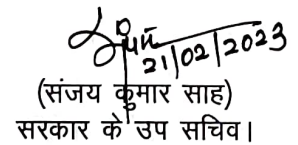 21/02/2023
(संजय कुमार साह)
सरकार के उप सचिव।